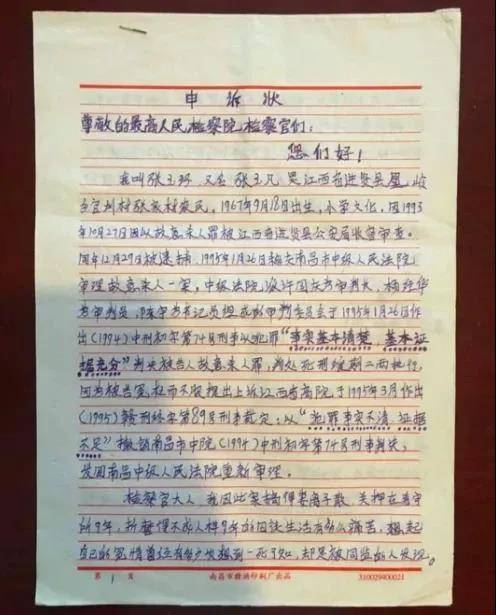 申诉状
尊敬的最高人民检察院检察官们：
您们好！
我叫张玉环 又名 张玉凡 是江西省进贤县凰岭
乡宫圳村张家村农民，1967年9月18日出生，小学文化，因1993
年10月27日因以故意杀人罪被江西省进贤县公安局收容审查。
同年12月29日被逮捕，1995年1月26日被南昌市中级人民法院
审理故意杀人一案，中级法院 国 为审判长，杨
为审判员，书记员组成 审判委员会于1995年1月26日作
出（1994）中刑初字第74号刑事以犯罪“事实基本清楚，基本证
据充分”判决被告人故意杀人罪，判处死刑缓期二年执行，
因为被告冤枉而不服提出上诉江西省高院于1995年3月作出
（1995）赣刑终字第89号刑事裁定：以“犯罪事实不清，证据
不足”撤销南昌市中院（1994）中刑初字第74号刑事判决，
发回南昌中级人民法院重新审理。
检察官大人，我因此案搞得妻离子散，关押在看守
所9年，折磨得不成人样9年的囚徒生活有多么痛苦，想起
自己的冤情曾经有多少次想到一死了知，却是被同监的人发现。
第 1 页
南昌市赣滨印刷厂出品
310029400021